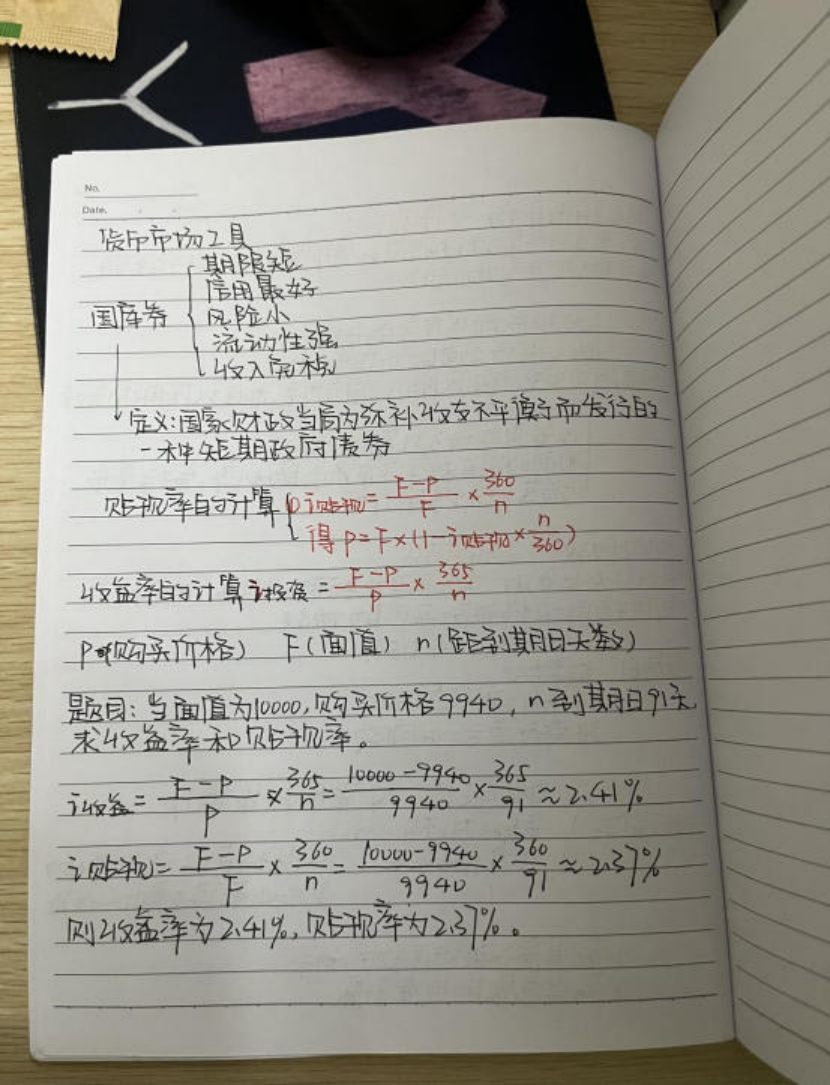 No.
Date.
货币市场工具
期限短
信用最好
国库券 风险小
流动性强
收入免税
定义:国家财政当局为弥补收支不平衡而发行的
一种短期政府债券
贴现率的计算 i贴现=F-P/F×360/n
得P=F×(1-i贴现×n/360)
收益率的计算 i投资=F-P/P×365/n
P(购买价格) F(面值) n(距到期日天数)
题目:当面值为10000,购买价格9940,n到期日91天,
求收益率和贴现率。
i收益=F-P/P×365/n=10000-9940/9940×365/91≈2.41%
i贴现=F-P/F×360/n=10000-9940/9940×360/91≈2.37%
则收益率为2.41%,贴现率为2.37%。